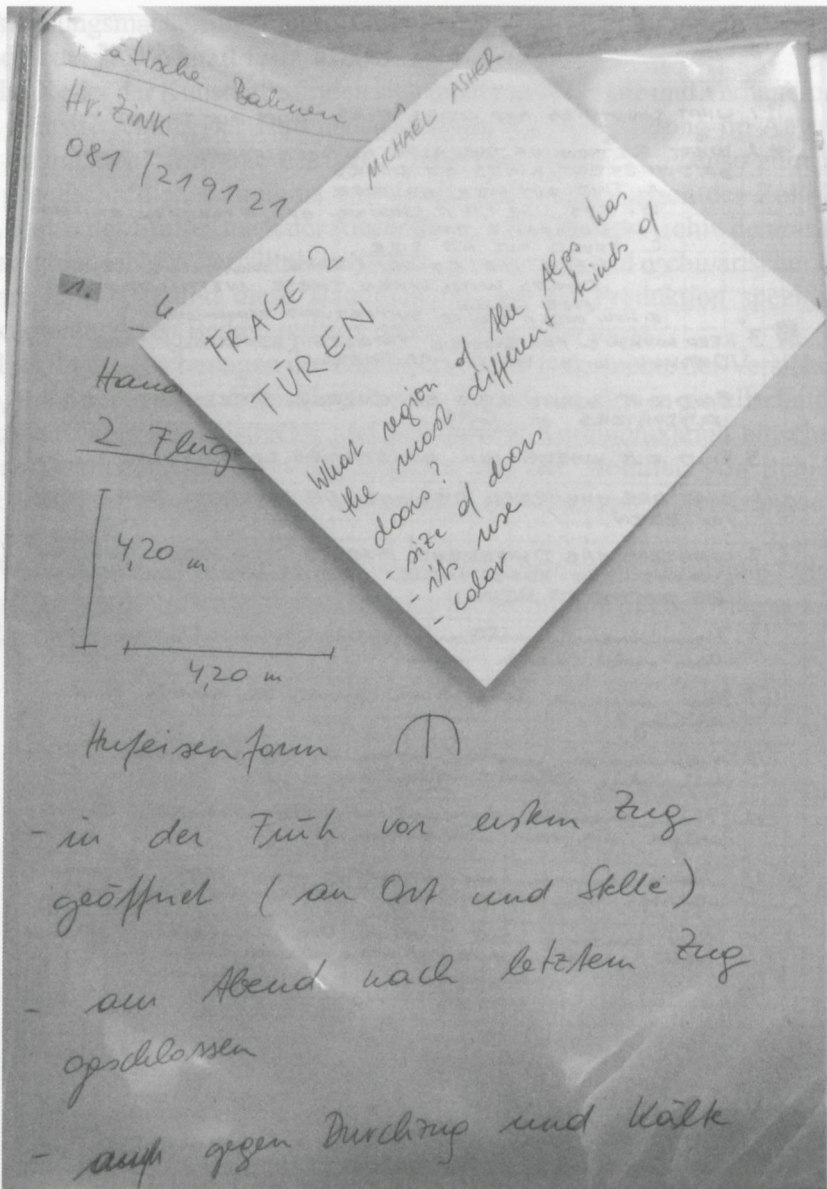 ätische Bahnen
Hr. ZINK
081 / 219121
1.
2 Flüg
4,20 m
4,20 m
Hufeisenform
- in der Früh vor erstem Zug
geöffnet (an Ort und Stelle)
- am Abend nach letztem Zug
geschlossen
- auch gegen Durchzug und Kälte
MICHAEL ASHER
FRAGE 2
TÜREN
What region of the Alps has
the most different kinds of
doors?
- size of doors
- its use
- color